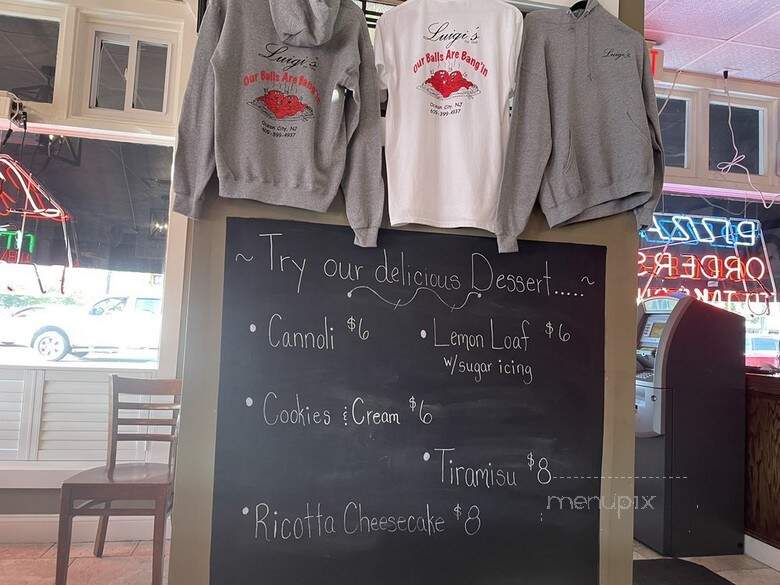 Luigi's
Our Balls Are Bang'in
Ocean City, NJ
609-399-4937
Luigi's
Our Balls Are Bang'in
Ocean City, NJ
609-399-4937
Luigi's
~ Try our delicious Dessert..... ~
• Cannoli $6
• Lemon Loaf $6
w/sugar icing
• Cookies & Cream $6
• Tiramisu $8
• Ricotta Cheesecake $8
menupix
PIZZA
ORDERS